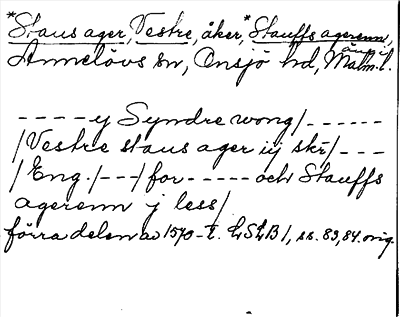 *Staus ager, Vestre, åker, *Stauffs agerenn, äng i
Annelövs sn, Onsjö hd, Malm. l.
- - - - ej Syndre wong/ - - - - - -
/Vestre staus ager iij skr/ - - -
/Eng./ - - -/for - - - - - och Stauffs
agerenn j less/
förra delen av 1570-t. LSLB1, ss. 83, 84. orig.